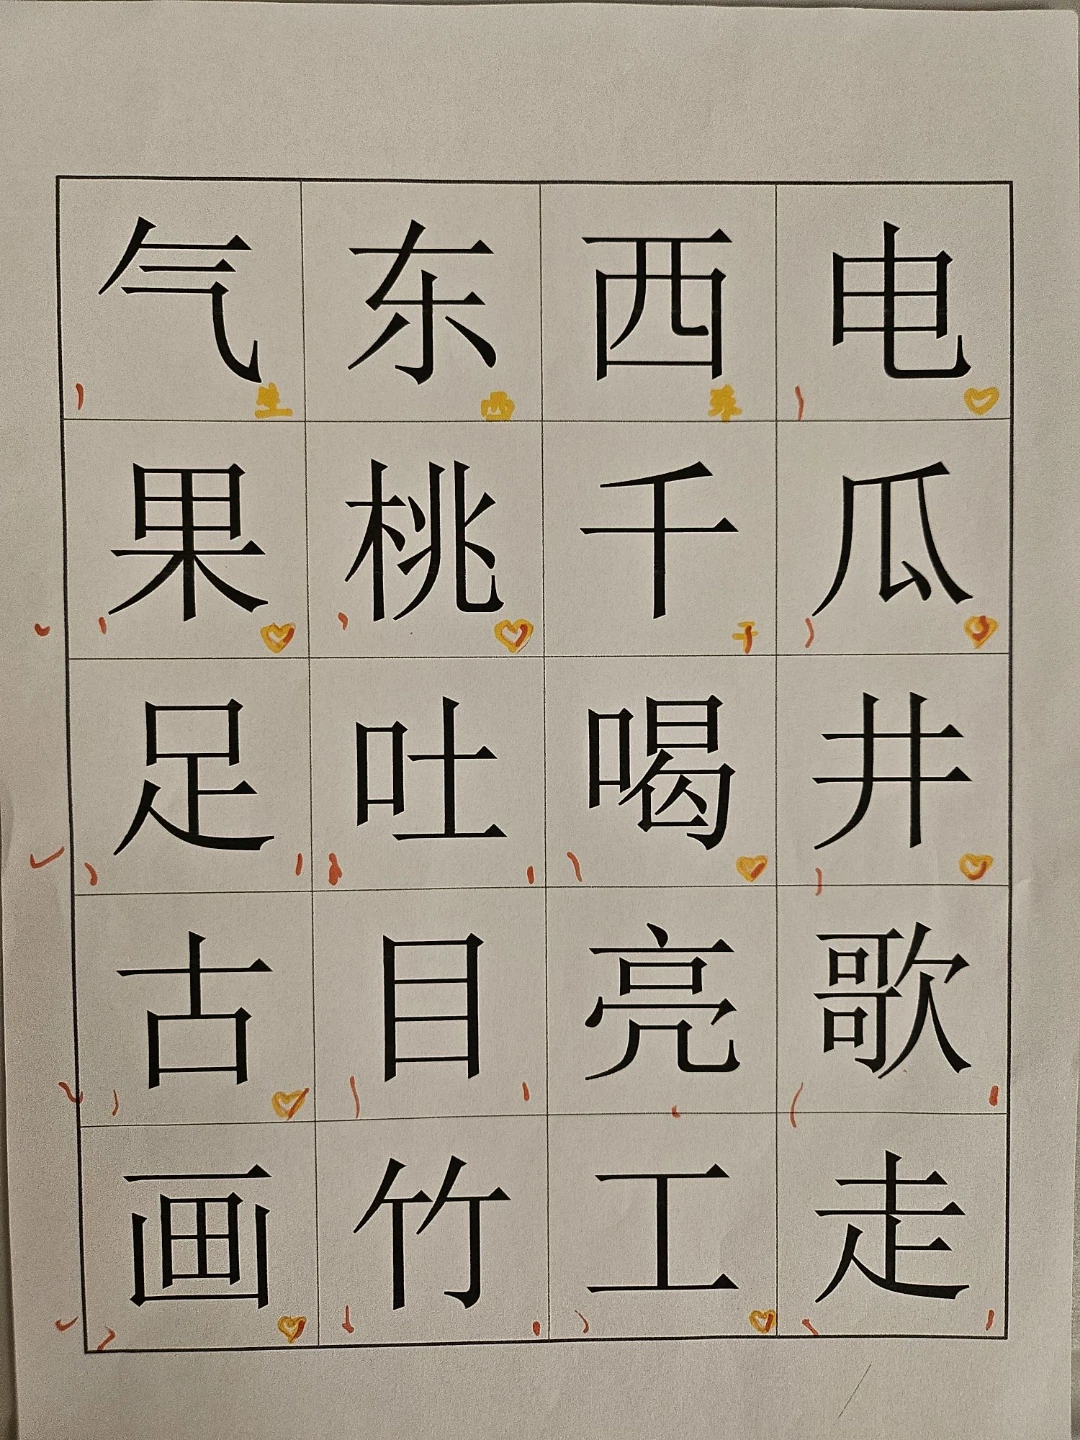 气 东 西 电
生 西 东
果 桃 千 瓜
于
足 吐 喝 井
古 目 亮 歌
画 竹 工 走